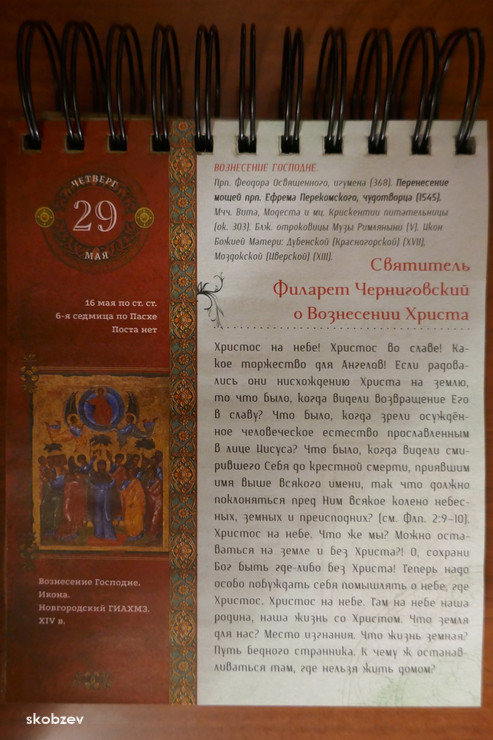 ЧЕТВЕРГ
29
МАЯ
16 мая по ст. ст.
6-я седмица по Пасхе
Поста нет
Вознесение Господне.
Икона.
Новгородский ГИАХМЗ.
XIV в.
ВОЗНЕСЕНИЕ ГОСПОДНЕ.
Прп. Феодора Освященного, игумена (368). Перенесение
мощей прп. Ефрема Перекомского, чудотворца (1545).
Мчч. Вита, Модеста и мц. Крискентии питательницы
(ок. 303). Блж. отроковицы Музы Римляныни (V). Икон
Божией Матери: Дубенской (Красногорской) (XVII),
Моздокской (Иверской) (XIII).
Святитель
Филарет Черниговский
о Вознесении Христа
Христос на небе! Христос во славе! Ка-
кое торжество для Ангелов! Если радова-
лись они нисхождению Христа на землю,
то что было, когда видели возвращение Его
в славу? Что было, когда зрели осуждён-
ное человеческое естество прославленным
в лице Иисуса? Что было, когда видели сми-
рившего Себя до крестной смерти, приявшим
имя выше всякого имени, так что должно
поклоняться пред Ним всякое колено небес-
ных, земных и преисподних? (см. Флп. 2:9–10).
Христос на небе. Что же мы? Можно оста-
ваться на земле и без Христа?! О, сохрани
Бог быть где-либо без Христа! Теперь надо
особо побуждать себя помышлять о небе, где
Христос. Христос на небе. Там на небе наша
родина, наша жизнь со Христом. Что земля
для нас? Место изгнания. Что жизнь земная?
Путь бедного странника. К чему ж останав-
ливаться там, где нельзя жить домом?
skobzev